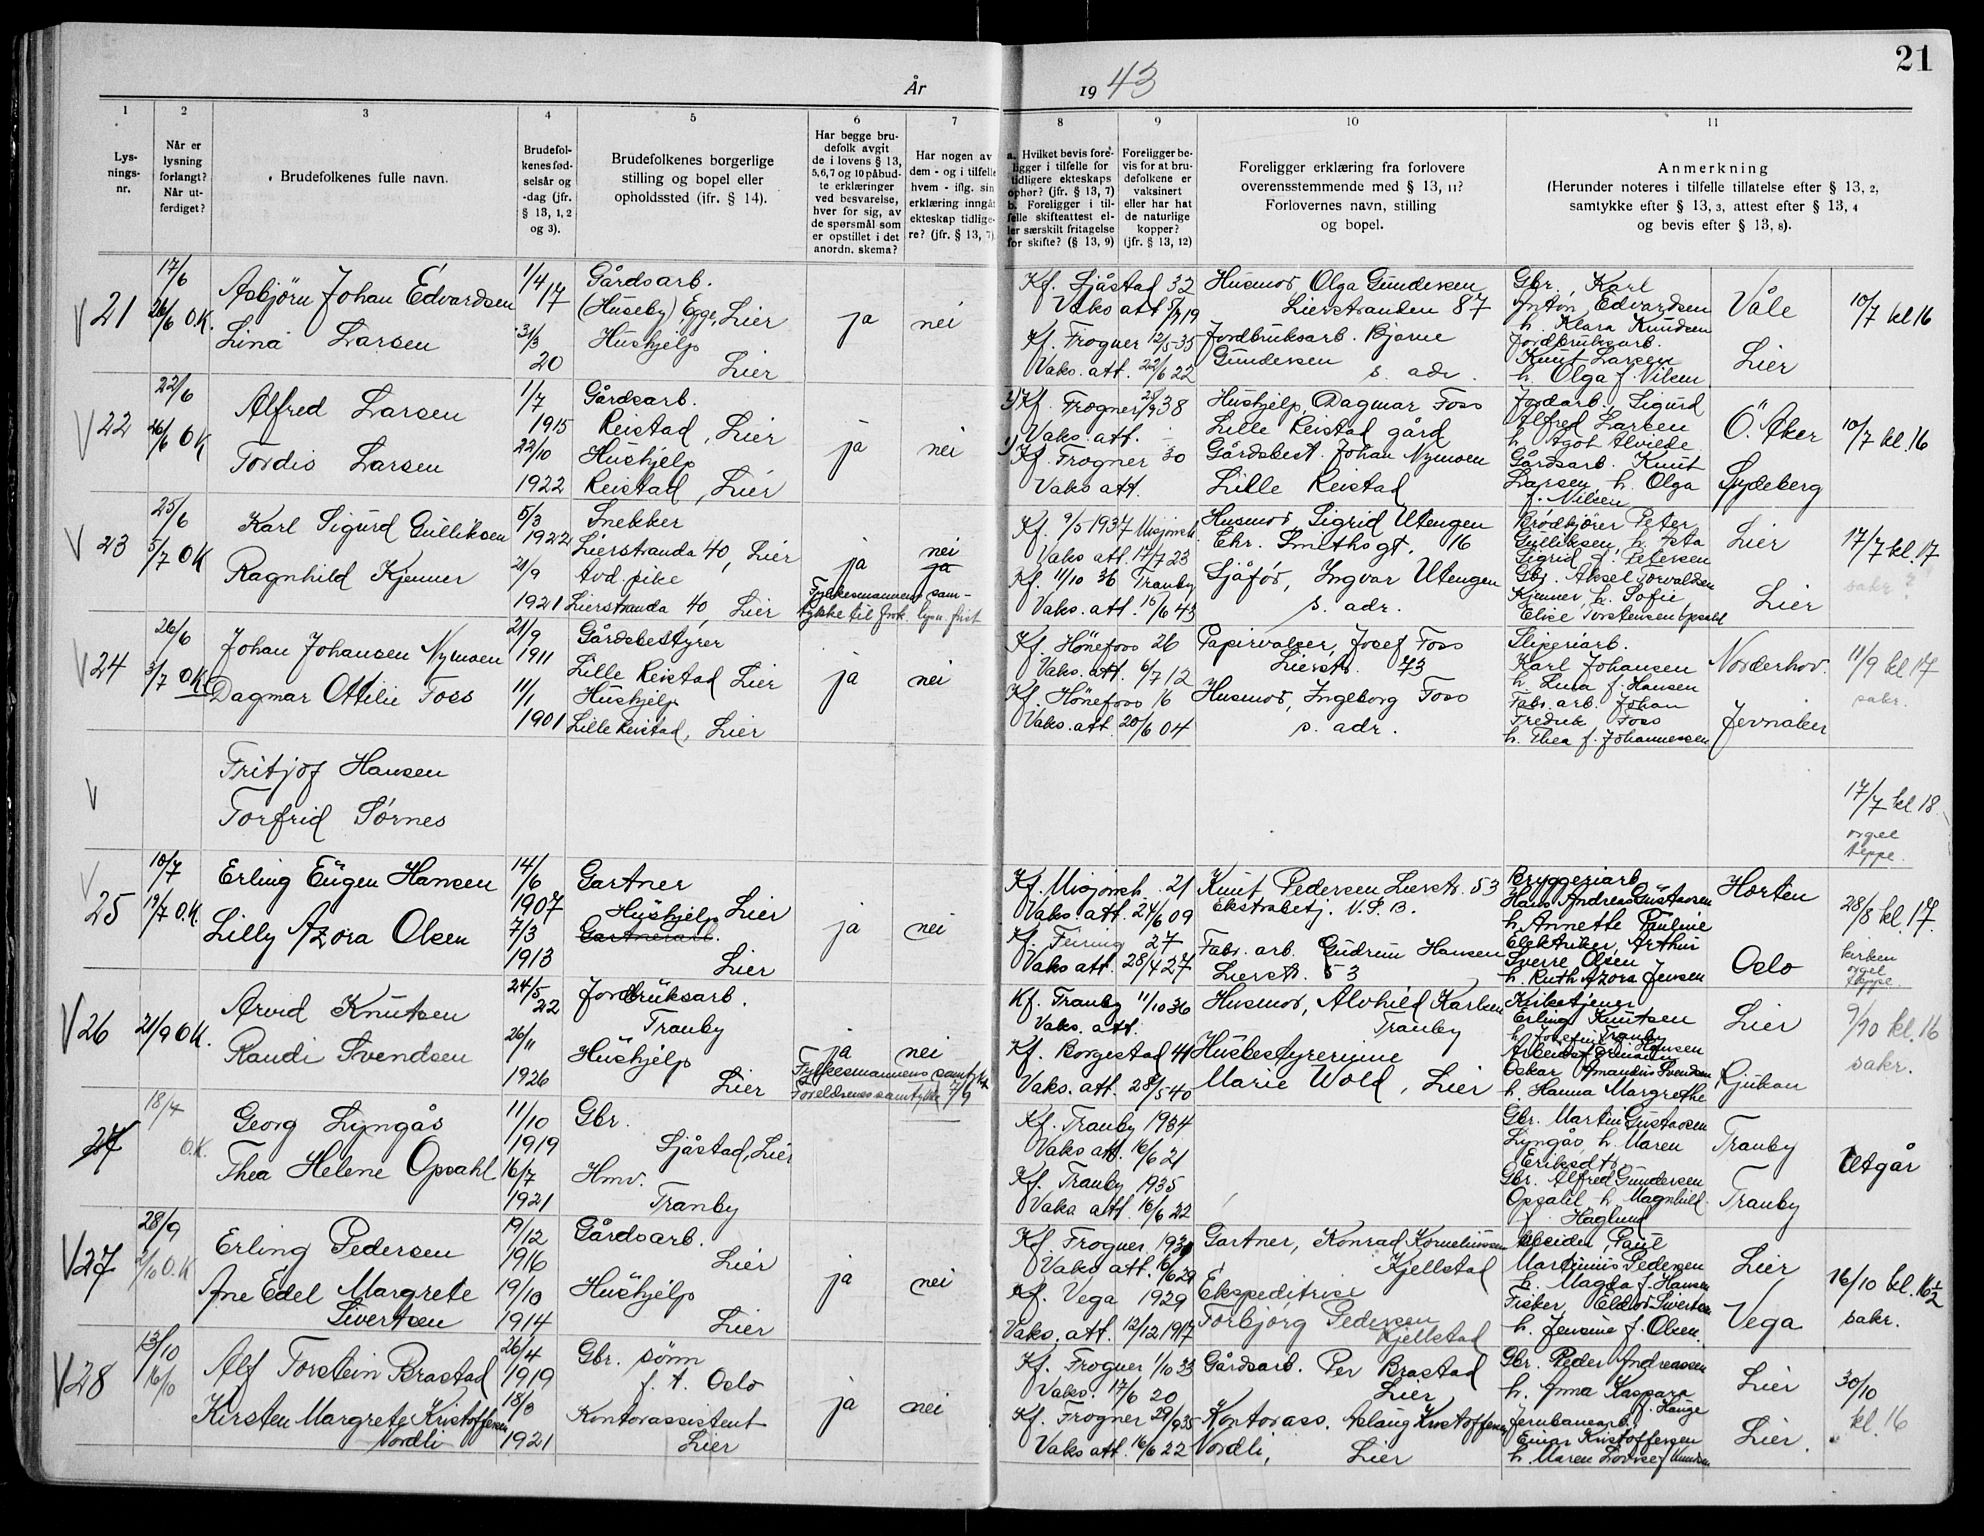 21
År
19 43
1 2 3 4 5 6 7 8 9 10 11
Lysningsnr.
Når er lysning forlangt? Når utferdiget?
Brudefolkenes fulle navn.
Brudefolkenes fødselsår og -dag (jfr. § 13, 1, 2 og 3).
Brudefolkenes borgerlige stilling og bopel eller opholdssted (jfr. § 14).
Har begge brudefolk avgit de i lovens § 13, 5, 6, 7 og 10 påbudte erklæringer ved besvarelse, hver for sig, av de spørsmål som er opstillet i det anordn. skema?
Har nogen av dem - og i tilfelle hvem - iflg. sin erklæring inngåt ekteskap tidligere? (jfr. § 13, 7)
a. Hvilket bevis foreligger i tilfelle for tidligere ekteskaps ophør? (jfr. § 13, 7)
b. Foreligger i tilfelle skifteattest eller særskilt fritagelse for skifte? (§ 13, 9)
Foreligger bevis for at brudefolkene er vaksinert eller har hat de naturlige kopper? (jfr. § 13, 12)
Foreligger erklæring fra forlovere overensstemmende med § 13, 11? Forlovernes navn, stilling og bopel.
Anmerkning
(Herunder noteres i tilfelle tillatelse efter § 13, 2, samtykke efter § 13, 3, attest efter § 13, 4 og bevis efter § 13, 8).
V 21
17/6
26/6 O.K.
Asbjörn Johan Edvardsen
Lina Larsen
1/4 17
31/3 20
Gårdsarb.
(Huseby) Egge, Lier
Hushjelp
Lier
ja
nei
Kf. Sjåstad 32
Vaks att 8/7 19
Kf. Frogner 12/5-35
Vaks. att. 22/6 22
Husmor Olga Gundersen
Lierstranden 87
Jordbruksarb. Bjarne
Gundersen
s. adr.
Gbr. Karl
Anton Edvardsen
h. Klara Knudsen
Jordbruksarb.
Knut Larsen
h. Olga f. Nilsen
Våle
Lier
10/7 kl 16
V 22
22/6
26/6 OK
Alfred Larsen
Tordis Larsen
1/7
1915
22/10
1922
Gårdsarb.
Reistad, Lier
Hushjelp
Reistad, Lier
ja
nei
Kf. Frogner 38
Vaks. att.
Kf. Frogner 30
Vaks att.
Hushjelp Dagmar Foss
Lille Reistad gård
Gårdsbest. Johan Nymoen
Lille Reistad
Jordarb. Sigurd
Alfred Larsen
h. Agot Alvilde
Gårdsarb. Knut
Larsen h. Olga
f. Nilsen
Ö. Aker
Sydeberg
10/7 kl. 16
V 23
25/6
5/7 OK
Karl Sigurd Gulliksen
Ragnhild Kjenner
5/3
1922
21/9
1921
Snekker
Lierstranda 40, Lier
Avd. pike
Lierstranda 40, Lier
ja
nei
ja
Fylkesmannens sam-
tykke til fork. lysn. frist
Kf. 9/5 1937 Misjonsk.
Vaks att. 17/7 23
Kf. 11/10 36 Tranby
Vaks. att. 16/6 43
Husmor Sigrid Utengen
Chr. Smithsgt. 16
Sjåfør, Ingvar Utengen
s. adr.
Brödkjörer Peter
Gulliksen, h. Asta
Sigrid f. Petersen
Gbr. Aksel Torvaldsen
Kjenner, h. Sofie
Elise Torstensen Upsahl
Lier
Lier
17/7 kl. 17
sakr ?
V 24
26/6
3/7 OK
Johan Johansen Nymoen
Dagmar Ottilie Foss
21/9
1911
11/1
1901
Gårdsbestyrer
Lille Reistad Lier
Hushjelp
Lille Reistad, Lier
ja
nei
Kf. Hönefoss 26
Vaks. att. 6/7 12
Kf. Hönefoss 16
Vaks. att. 20/6 04
Papirvalser, Josef Foss
Lierstr. 73
Husmor, Ingeborg Foss
s. adr.
Sliperiarb.
Karl Johansen
h. Lina f. Hansen
Fabr. arb. Johan
Fredrik Foss
h. Thea f. Johannessen
Norderhov.
Jevnaker
11/9 kl 17
sakr.
V
Fritjof Hansen
Torfrid Sørnes
17/7 kl. 18
orgel
teppe.
V
25
10/7
19/7 O.K.
Erling Eugen Hansen
Lilly Azora Olsen
14/6
1907
7/3
1913
Gartner
Lier
Hushjelp
Gartnerarb.
Lier
ja
nei
Kf. Misjonsk. 21
Vaks. att. 24/6 09
Kf. Feiring 27
Vaks att. 28/4 27
Knut Pedersen Lierstr. 53
Ekstrabetj. N.S.B.
Fabr. arb. Gudrun Hansen
Lierstr. 53
Bryggeriarb.
Hans Andreas Gustavsen
h. Annette Pauline
Elektriker, Arthur
Sverre Olsen
h. Ruth Azora Jensen
Horten
Oslo
28/8 kl. 17.
kirken
orgel
teppe
V 26
21/9 O.K.
Arvid Knutsen
Randi Svendsen
24/5 22
26/11
1926
Jordbruksarb.
Tranby
Hushjelp
Lier
ja
nei
Fylkesmannens samtykke
Foreldrenes samtykke 7/9
Kf. Tranby 11/10 36
Vaks. att.
Kf. Borgestad 41
Vaks. att. 28/5-40
Husmor, Alvhild Karlsen
Tranby
Husbestyrerinne
Marie Wold, Lier
Kirketjener
Erling Knutsen
h. Josefine Hansen
Tranby
Arbeidsformann
Oskar Amandus Svendsen
h. Hanna Margrethe
Lier
Rjukan
9/10 kl. 16
sakr.
27
18/4
O.K.
Georg Lyngås
Thea Helene Opsahl
11/10
1919
16/7
1921
Gbr.
Sjåstad, Lier
Hmv.
Tranby
Kf. Tranby 1934
Vaks att. 16/6 21
Kf. Tranby 1935
Vaks att. 16/6 22
Gbr. Martin Gustavsen
Lyngås h. Maren
Eriksdtr
Gbr. Alfred Gundersen
Opsahl h. Magnhild
f. Haglund
Tranby
Tranby
Utgår
V 27
28/9
2/10 O.K
Erling Pedersen
Ane Edel Margrete
Sivertsen
19/12
1916
19/10
1914
Gårdsarb.
Lier
Hushjelp
Lier
ja
nei
Kf. Frogner 1931
Vaks att. 16/6 29
Kf. Vega 1929
Vaks. att. 12/12 1917
Gartner, Konrad Korneliussen
Kjellstad
Ekspeditrise
Torbjørg Pedersen
Kjellstad
Arbeider, Paul
Martinius Pedersen
h. Magda f. Hansen
Fisker, Eldor Sivertsen
h. Jensine f. Olsen.
Lier
Vega
16/10 kl. 16½
sakr.
V 28
13/10
16/10
Alf Torstein Brastad
Kirsten Margrete Kristoffersen
Nordli
26/4
1919
18/8
1921
Gbr. sönn
f. t. Oslo
Kontorassistent
Lier
ja
nei
Kf. Frogner 1/10 33
Vaks. 17/6 20
Kf. Frogner 29/9 35
Vaks att. 16/6 22
Gårdsarb. Per Brastad
Lier
Kontorass. Aslaug Kristoffersen
Nordli, Lier
Gbr. Peder Andreassen
h. Anna Kaspara
f. Hauge
Jernbanearb.
Einar Kristoffersen
h. Maren Lovise f. Knudsen
Lier
Lier.
30/10
kl. 16